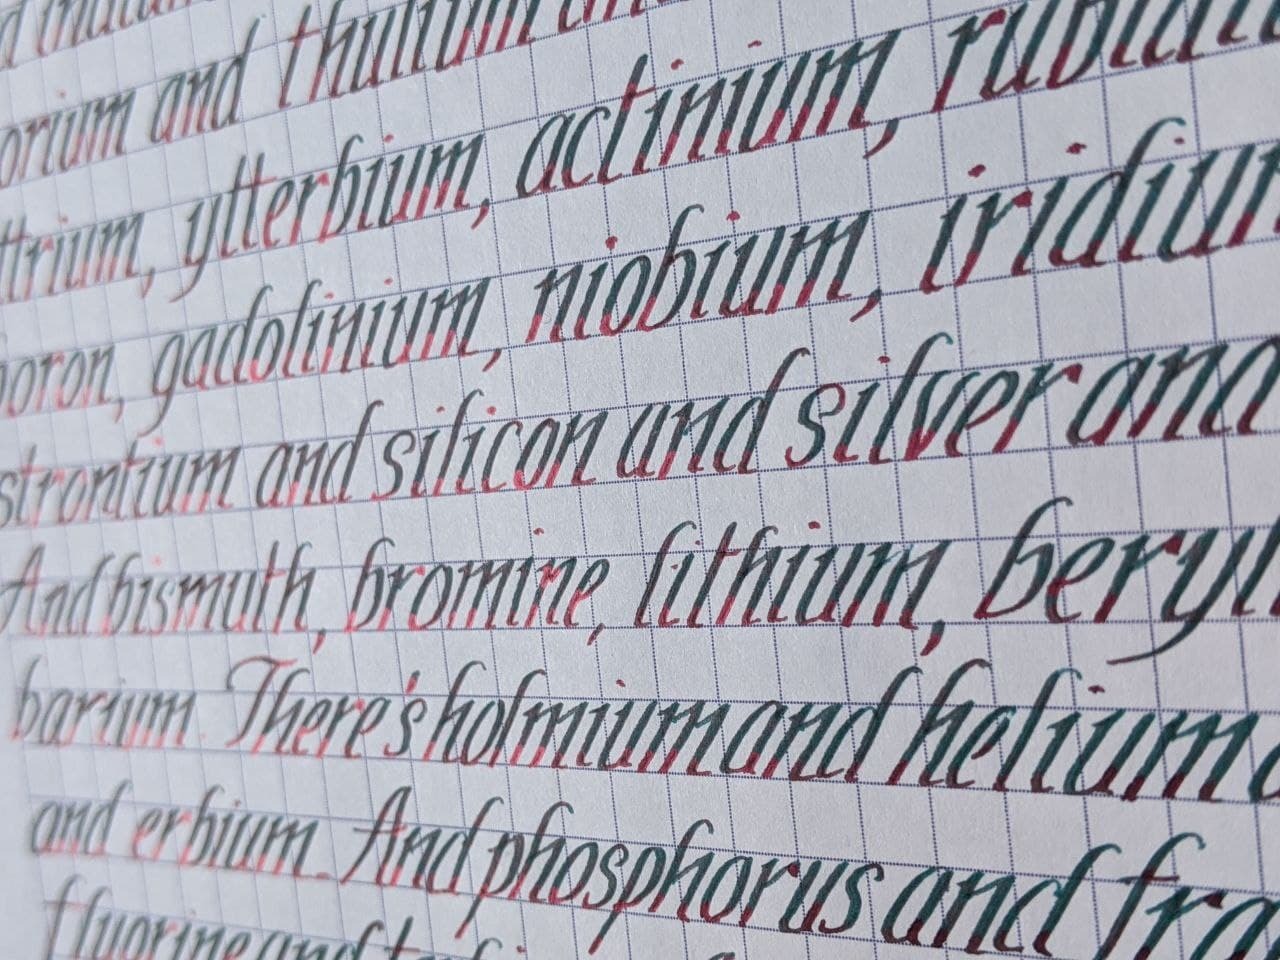 orium and thulium
trium, ytterbium, actinium, rubidiu
boron, gadolinium, niobium, iridium
strontium and silicon and silver and
And bismuth, bromine, lithium, beryl
barium. There's holmium and helium
and erbium. And phosphorus and fra
fluorine and